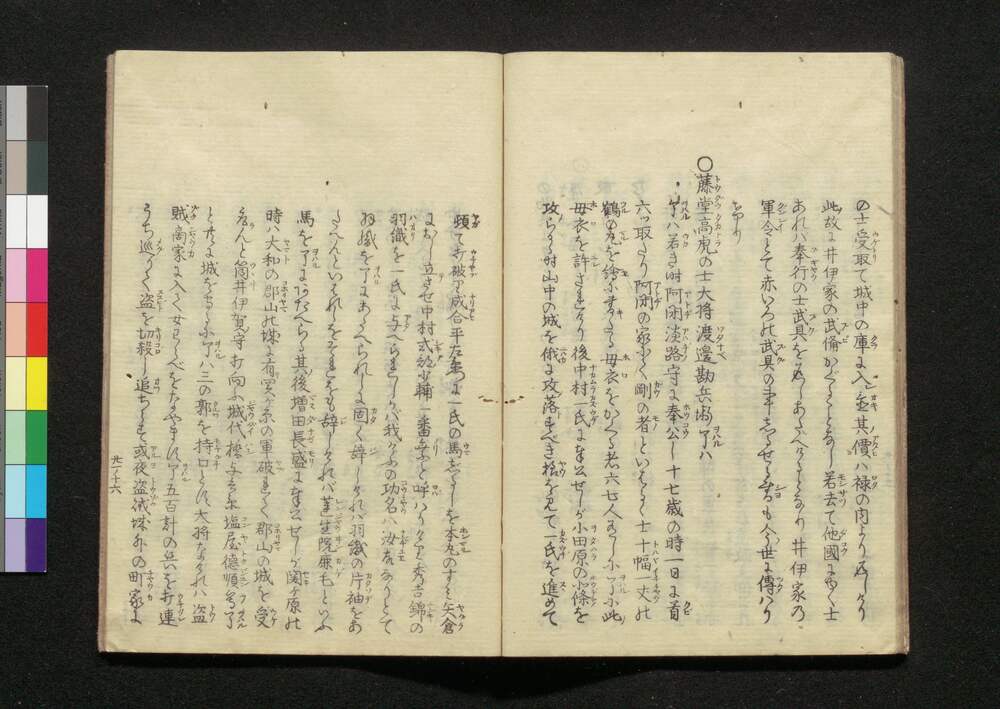 の士受取て城中の庫に入置其價ハ禄の内より返しけり
此故に井伊家の武備かくることなし若去て他國にゆく士
あれハ奉行の士武具を返しあたへけるとなり井伊家の
軍令とて赤いろの武具の事しらせるなるも今世に傳はり
けり
〇藤堂高虎の士大将渡邊勘兵衛了ハ
了ハ若き時阿閉淡路守に奉公し十七歳の時一日に首
六ツ取たり阿閉の家にて剛の者といはるゝ士十幅一丈の
鶴の丸を絵にかきたる母衣をかくる者六七人ありしに了に此
母衣を許されけり後中村一氏に奉公せしが小田原の北條を
攻らるゝ時山中の城を俄に攻落すべき様を見て一氏を進めて
頓て打破り成合平左衛門一氏の馬じるしを本丸のすみ矢倉
におし立させ中村式部少輔一番乗と呼ハりけり秀吉錦の
羽織を一氏に与へられしかバ我けふの功名ハ汝故なりとて
羽織を了にあたへられしに固く辞しけれハ羽織の片袖をあ
たへんといはれしをそれをも辞しけれバ蓮生院鹿毛といふ
馬を了にあたへらる其後増田長盛に奉公せしが関ヶ原の
時ハ大和の郡山の城に有関ヶ原の軍破れて郡山の城を受
取んと筒井伊賀守打向ふ城代橋与兵衛塩屋徳順等了
と共に城を守るに了ハ三の郭を持口とす大将なけれハ盗
賊商家に入て女わらべをなやます了五百計の兵を打連
うち巡りて盗を切殺し追ちらす或夜盗賊城外の町家に
九ノ十六